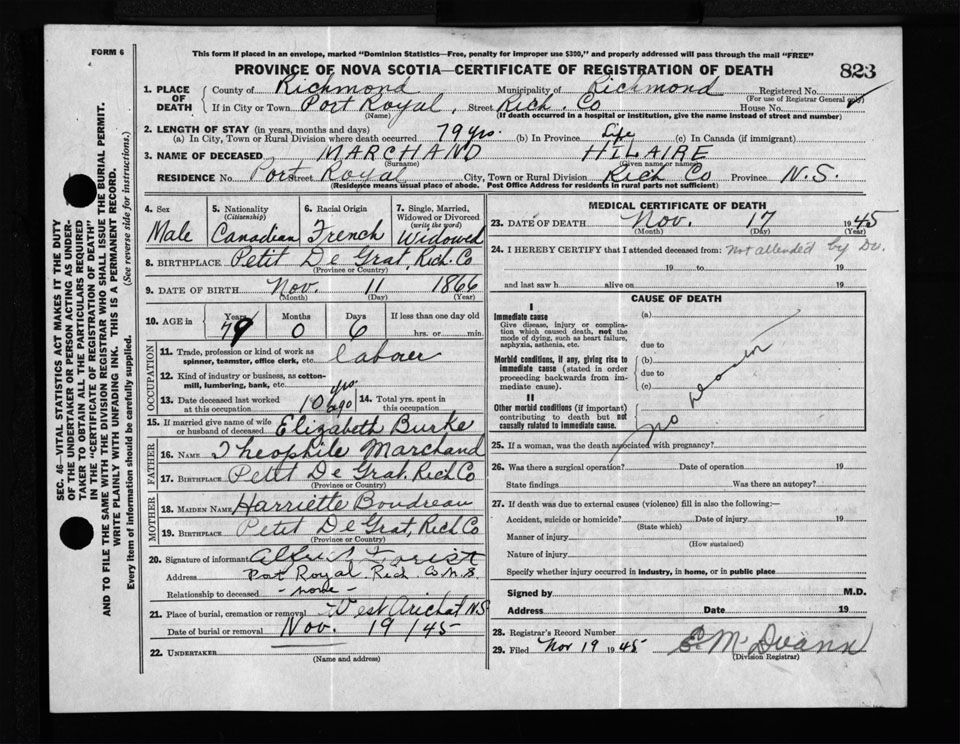 FORM 6
This form if placed in an envelope, marked "Dominion Statistics—Free, penalty for improper use $300," and properly addressed will pass through the mail "FREE"
PROVINCE OF NOVA SCOTIA—CERTIFICATE OF REGISTRATION OF DEATH 823
1. PLACE OF DEATH County of Richmond Municipality of Richmond Registered No.
(For use of Registrar General only)
If in City or Town Port Royal, Street Rich. Co House No.
(Name) (If death occurred in a hospital or institution, give the name instead of street and number)
2. LENGTH OF STAY (in years, months and days)
(a) In City, Town or Rural Division where death occurred 79 yrs. (b) In Province Life (c) In Canada (if immigrant)
3. NAME OF DECEASED MARCHAND HILAIRE
(Surname) (Given name or names)
RESIDENCE No. Port Street Royal City, Town or Rural Division Rich Co Province N.S.
(Residence means usual place of abode. Post Office Address for residents in rural parts not sufficient)
4. Sex 5. Nationality (Citizenship) 6. Racial Origin 7. Single, Married, Widowed or Divorced (write the word)
Male Canadian French Widowed
8. BIRTHPLACE Petit De Grat, Rich. Co
(Province or Country)
9. DATE OF BIRTH Nov. 11 1866
(Month) (Day) (Year)
10. AGE in Years Months Days If less than one day old
79 0 6 hrs. or min.
OCCUPATION
11. Trade, profession or kind of work as spinner, teamster, office clerk, etc. laborer
12. Kind of industry or business, as cotton-mill, lumbering, bank, etc.
13. Date deceased last worked at this occupation 10 yrs ago 14. Total yrs. spent in this occupation
15. If married give name of wife or husband of deceased Elizabeth Burke
FATHER
16. NAME Theophile Marchand
17. BIRTHPLACE Petit De Grat, Rich Co
(Province or Country)
MOTHER
18. MAIDEN NAME Harriette Boudreau
19. BIRTHPLACE Petit De Grat, Rich Co
(Province or Country)
20. Signature of informant
Address Port Royal Rich. Co N.S.
Relationship to deceased - none -
21. Place of burial, cremation or removal West Arichat N.S
Date of burial or removal Nov. 19 /45
22. UNDERTAKER
(Name and address)
MEDICAL CERTIFICATE OF DEATH
23. DATE OF DEATH Nov. 17 1945
(Month) (Day) (Year)
24. I HEREBY CERTIFY that I attended deceased from: Not attended by Dr.
19 to 19
and last saw h alive on 19
CAUSE OF DEATH
I
Immediate cause (a)
Give disease, injury or complication which caused death, not the mode of dying, such as heart failure, asphyxia, asthenia, etc.
due to
Morbid conditions, if any, giving rise to immediate cause (stated in order proceeding backwards from immediate cause).
(b)
due to
(c)
II
Other morbid conditions (if important) contributing to death but not causally related to immediate cause.
25. If a woman, was the death associated with pregnancy?
26. Was there a surgical operation? Date of operation 19
State findings Was there an autopsy?
27. If death was due to external causes (violence) fill in also the following:—
Accident, suicide or homicide? Date of injury 19
(State which)
Manner of injury
(How sustained)
Nature of injury
Specify whether injury occurred in industry, in home, or in public place
Signed by M.D.
Address Date 19
28. Registrar's Record Number
29. Filed Nov 19 1945
(Division Registrar)
SEC. 46—VITAL STATISTICS ACT MAKES IT THE DUTY
OF THE UNDERTAKER OR PERSON ACTING AS UNDER-
TAKER TO OBTAIN ALL THE PARTICULARS REQUIRED
IN THE "CERTIFICATE OF REGISTRATION OF DEATH"
AND TO FILE THE SAME WITH THE DIVISION REGISTRAR WHO SHALL ISSUE THE BURIAL PERMIT.
WRITE PLAINLY WITH UNFADING INK. THIS IS A PERMANENT RECORD.
Every item of information should be carefully supplied. (See reverse side for instructions.)